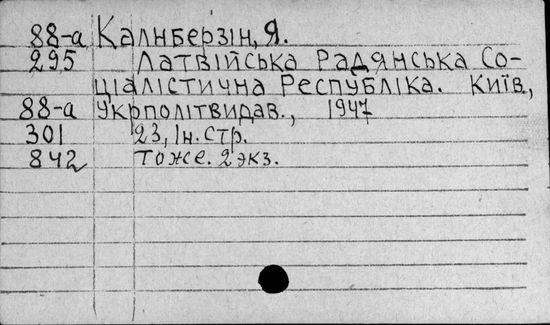 88-а Калнберзін, Я.
295 Латвійська Радянська Со-
ціалістична Республіка. Київ,
88-а Укрполітвидав., 1947
301 23, Ін. стр.
842 тоже. 2 экз.